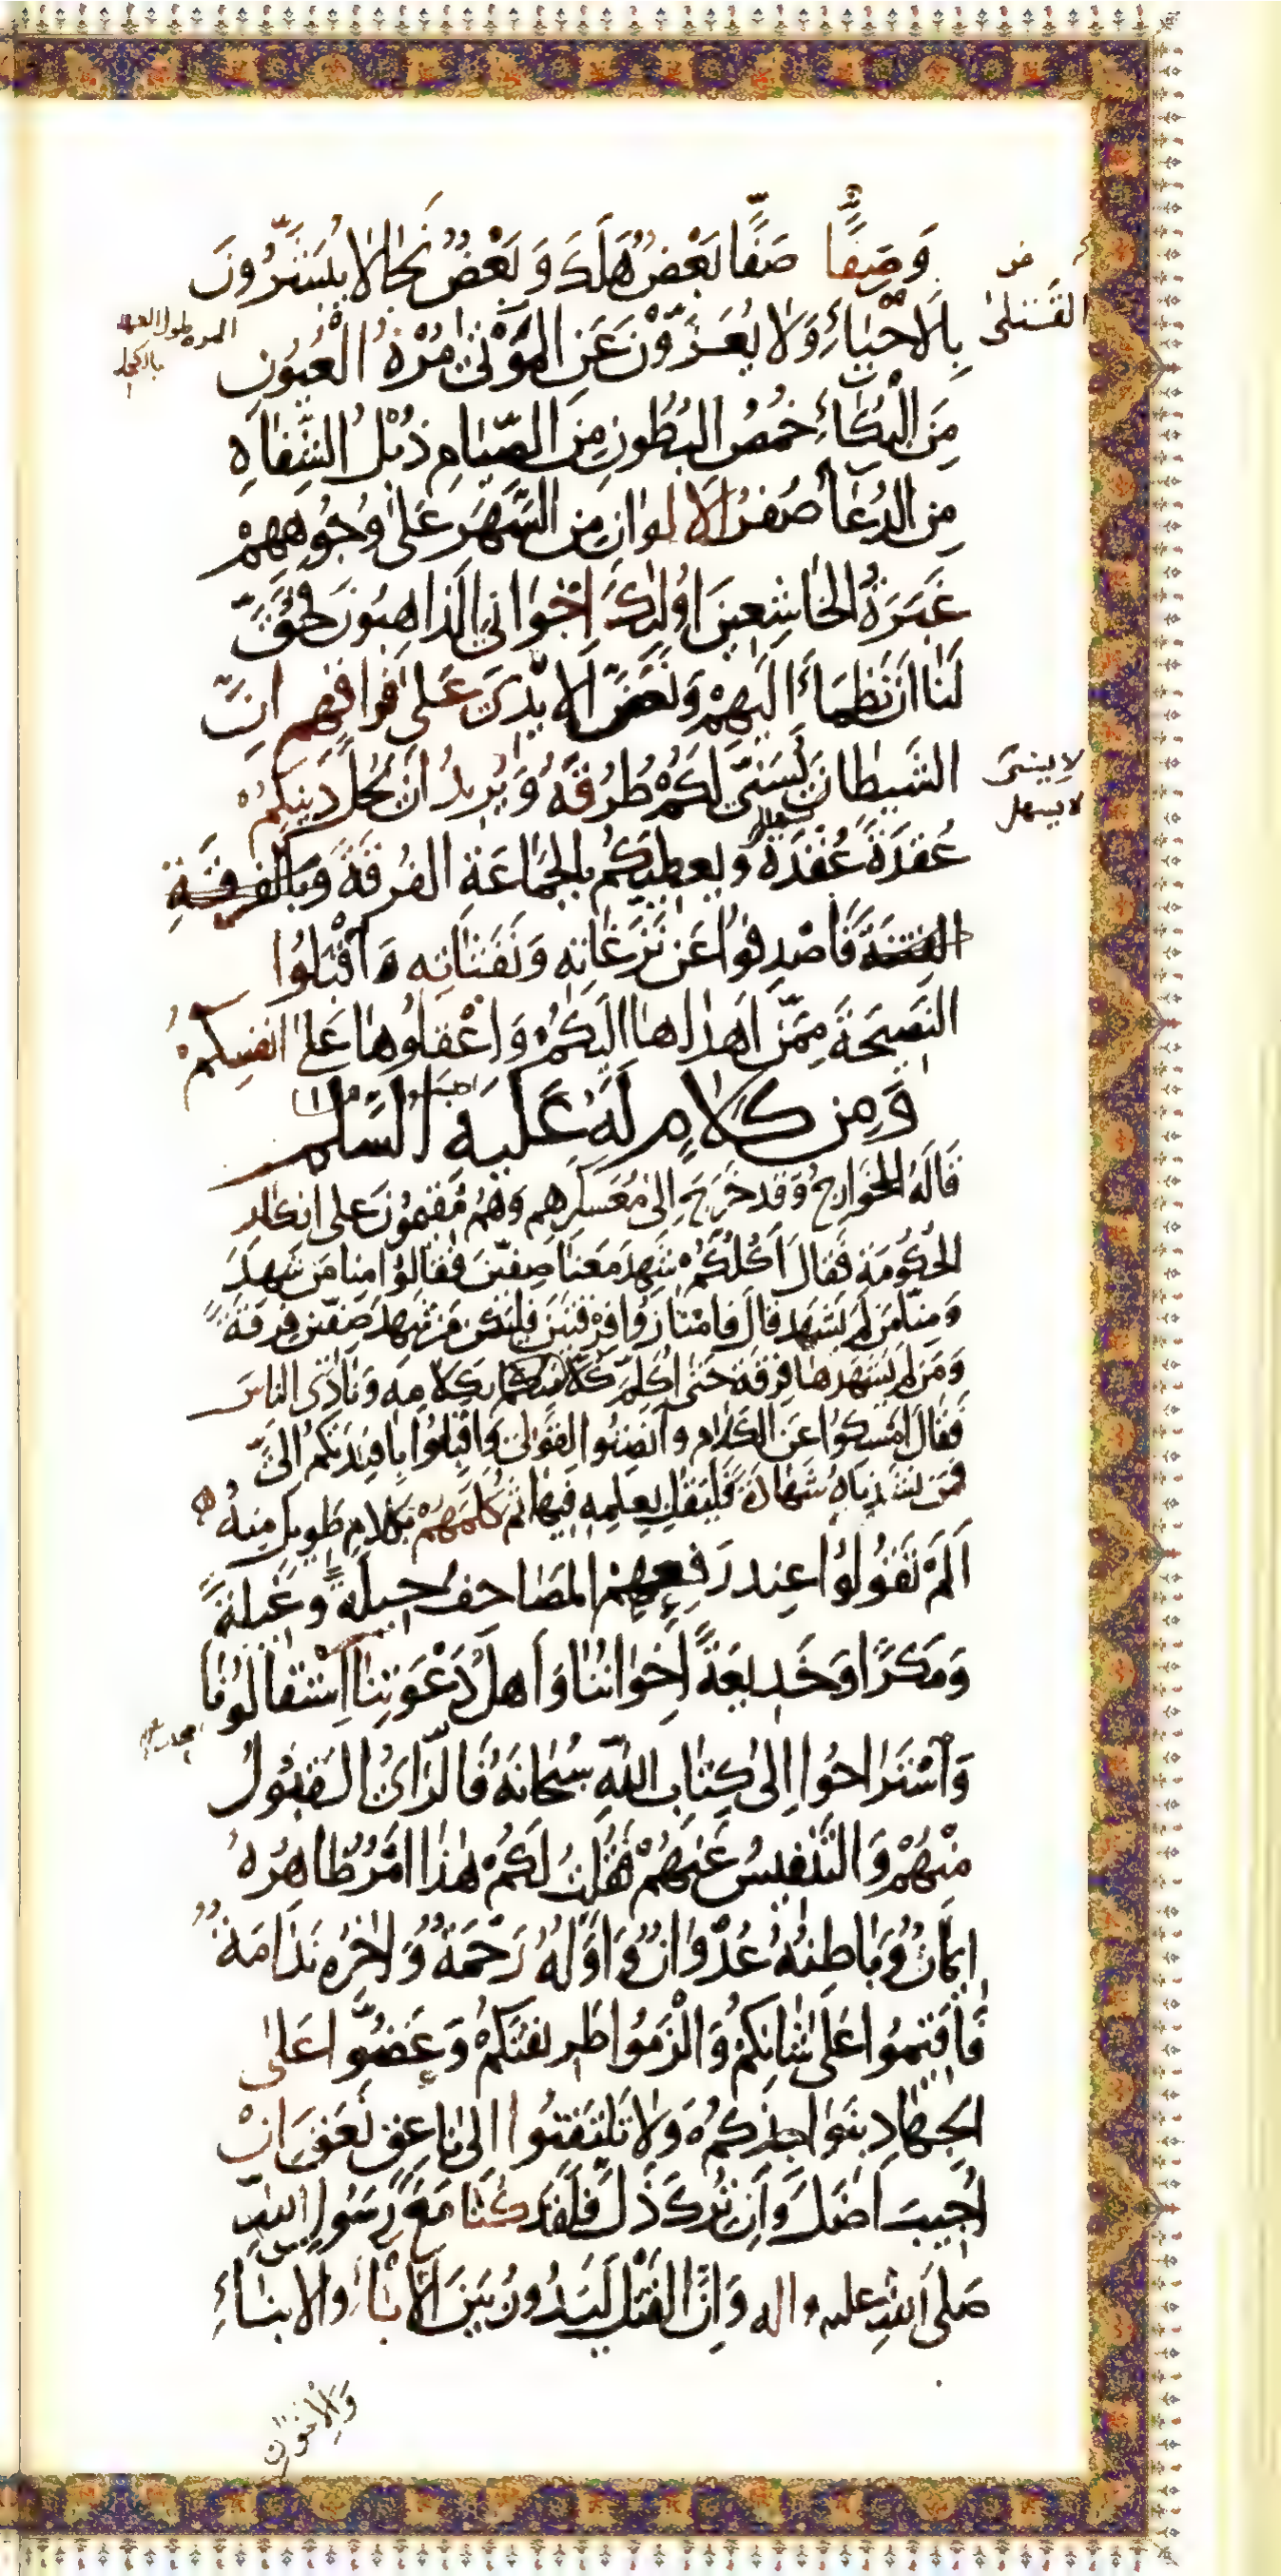 وَصَفًّا صَفًّا بَعْضٌ هَلَكَ وَ بَعْضٌ نَجَا لَا يُبَشَّرُونَ
القتلى
بِالْاَحْيَاءِ وَلَا يُعَزَّوْنَ عَنِ الْمَوْتٰى مُرْهُ الْعُيُونِ
مِنَ الْبُكَاءِ خُمُصُ الْبُطُونِ مِنَ الصِّيَامِ ذُبُلُ الشِّفَاهِ
مِنَ الدُّعَاءِ صُفْرُ الْاَلْوَانِ مِنَ السَّهَرِ عَلٰى وُجُوهِهِمْ
غَبَرَةُ الْخَاشِعِينَ اُولٰئِكَ اِخْوَانِي الذَّاهِبُونَ فَحُقَّ
لَنَا اَنْ نَظْمَاَ اِلَيْهِمْ وَنَعَضَّ الْاَيْدِىَ عَلٰى فِرَاقِهِمْ اِنَّ
الشَّيْطَانَ يُسَنِّي لَكُمْ طُرُقَهُ وَ يُرِيدُ اَنْ يَحُلَّ دِينَكُمْ
عُقْدَةً عُقْدَةً وَ يُعْطِيَكُمْ بِالْجَمَاعَةِ الْفُرْقَةَ وَبِالْفُرْقَةِ
الْفِتْنَةَ فَاصْدِفُوا عَنْ نَزَغَاتِهِ وَنَفَثَاتِهِ وَاقْبَلُوا
النَّصِيحَةَ مِمَّنْ اَهْدَاهَا اِلَيْكُمْ وَ اعْقِلُوهَا عَلٰى اَنْفُسِكُمْ
وَمِنْ كَلَامٍ لَهُ عَلَيْهِ السَّلَم
قَالَهُ لِلْخَوَارِجِ وَقَدْ خَرَجَ اِلٰى مُعَسْكَرِهِمْ وَهُمْ مُقِيمُونَ عَلٰى اِنْكَارِ
الْحُكُومَةِ فَقَالَ اَكُلُّكُمْ شَهِدَ مَعَنَا صِفِّينَ فَقَالُوا مِنَّا مَنْ شَهِدَ
وَمِنَّا مَنْ لَمْ يَشْهَدْ قَالَ فَامْتَازُوا فِرْقَتَيْنِ فَلْيَكُنْ مَنْ شَهِدَ صِفِّينَ فِرْقَةً
وَمَنْ لَمْ يَشْهَدْهَا فِرْقَةً حَتّٰى اُكَلِّمَ كُلًّا مِنْكُمْ بِكَلَامِهِ وَنَادَى النَّاسَ
فَقَالَ اَمْسِكُوا عَنِ الْكَلَامِ وَ اَنْصِتُوا لِقَوْلِي وَاَقْبِلُوا بِاَفْئِدَتِكُمْ اِلَيَّ
فَمَنْ نَشَدْنَاهُ شَهَادَةً فَلْيَقُلْ بِعِلْمِهِ فِيهَا ثُمَّ كَلَّمَهُمْ بِكَلَامٍ طَوِيلٍ مِنْهُ
اَلَمْ تَقُولُوا عِنْدَ رَفْعِهِمُ الْمَصَاحِفَ حِيلَةً وَ غِيلَةً
وَمَكْرًا وَ خَدِيعَةً اِخْوَانُنَا وَ اَهْلُ دَعْوَتِنَا اسْتَقَالُونَا
وَاسْتَرَاحُوا اِلٰى كِتَابِ اللّٰهِ سُبْحَانَهُ فَالرَّاْىُ الْقَبُولُ
مِنْهُمْ وَ التَّنْفِيسُ عَنْهُمْ فَقُلْتُ لَكُمْ هٰذَا اَمْرٌ ظَاهِرُهُ
اِيمَانٌ وَ بَاطِنُهُ عُدْوَانٌ وَ اَوَّلُهُ رَحْمَةٌ وَ اٰخِرُهُ نَدَامَةٌ
فَاَقِيمُوا عَلٰى شَاْنِكُمْ وَالْزَمُوا طَرِيقَتَكُمْ وَ عَضُّوا عَلٰى
الْجِهَادِ بِنَوَاجِذِكُمْ وَلَا تَلْتَفِتُوا اِلٰى نَاعِقٍ نَعَقَ اِنْ
اُجِيبَ اَضَلَّ وَاِنْ تُرِكَ ذَلَّ فَلَقَدْ كُنَّا مَعَ رَسُولِ اللهِ
صَلَّى اللهُ عليه واله وَ اِنَّ الْقَتْلَ لَيَدُورُ بَيْنَ الْاٰبَاءِ وَالْاَبْنَاءِ
وَالْاِخْوَانِ